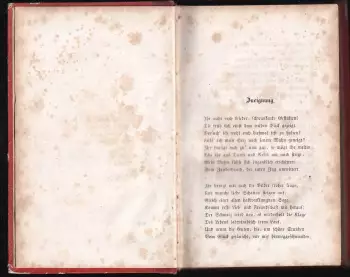 Zueignung.
Ihr naht euch wieder, schwankende Gestalten!
Die früh sich einst dem trüben Blick gezeigt.
Versuch' ich wohl euch diesmal fest zu halten?
Fühl' ich mein Herz noch jenem Wahn geneigt?
Ihr drängt euch zu! nun gut, so mögt ihr walten,
Wie ihr aus Dunst und Nebel um mich steigt;
Mein Busen fühlt sich jugendlich erschüttert
Vom Zauberhauch, der euren Zug umwittert.
Ihr bringt mit euch die Bilder froher Tage,
Und manche liebe Schatten steigen auf;
Gleich einer alten halbverklungnen Sage,
Kommt erste Lieb' und Freundschaft mit herauf;
Der Schmerz wird neu, es wiederholt die Klage
Des Lebens labyrinthisch irren Lauf,
Und nennt die Guten, die, um schöne Stunden
Vom Glück getäuscht, vor mir hinweggeschwunden.